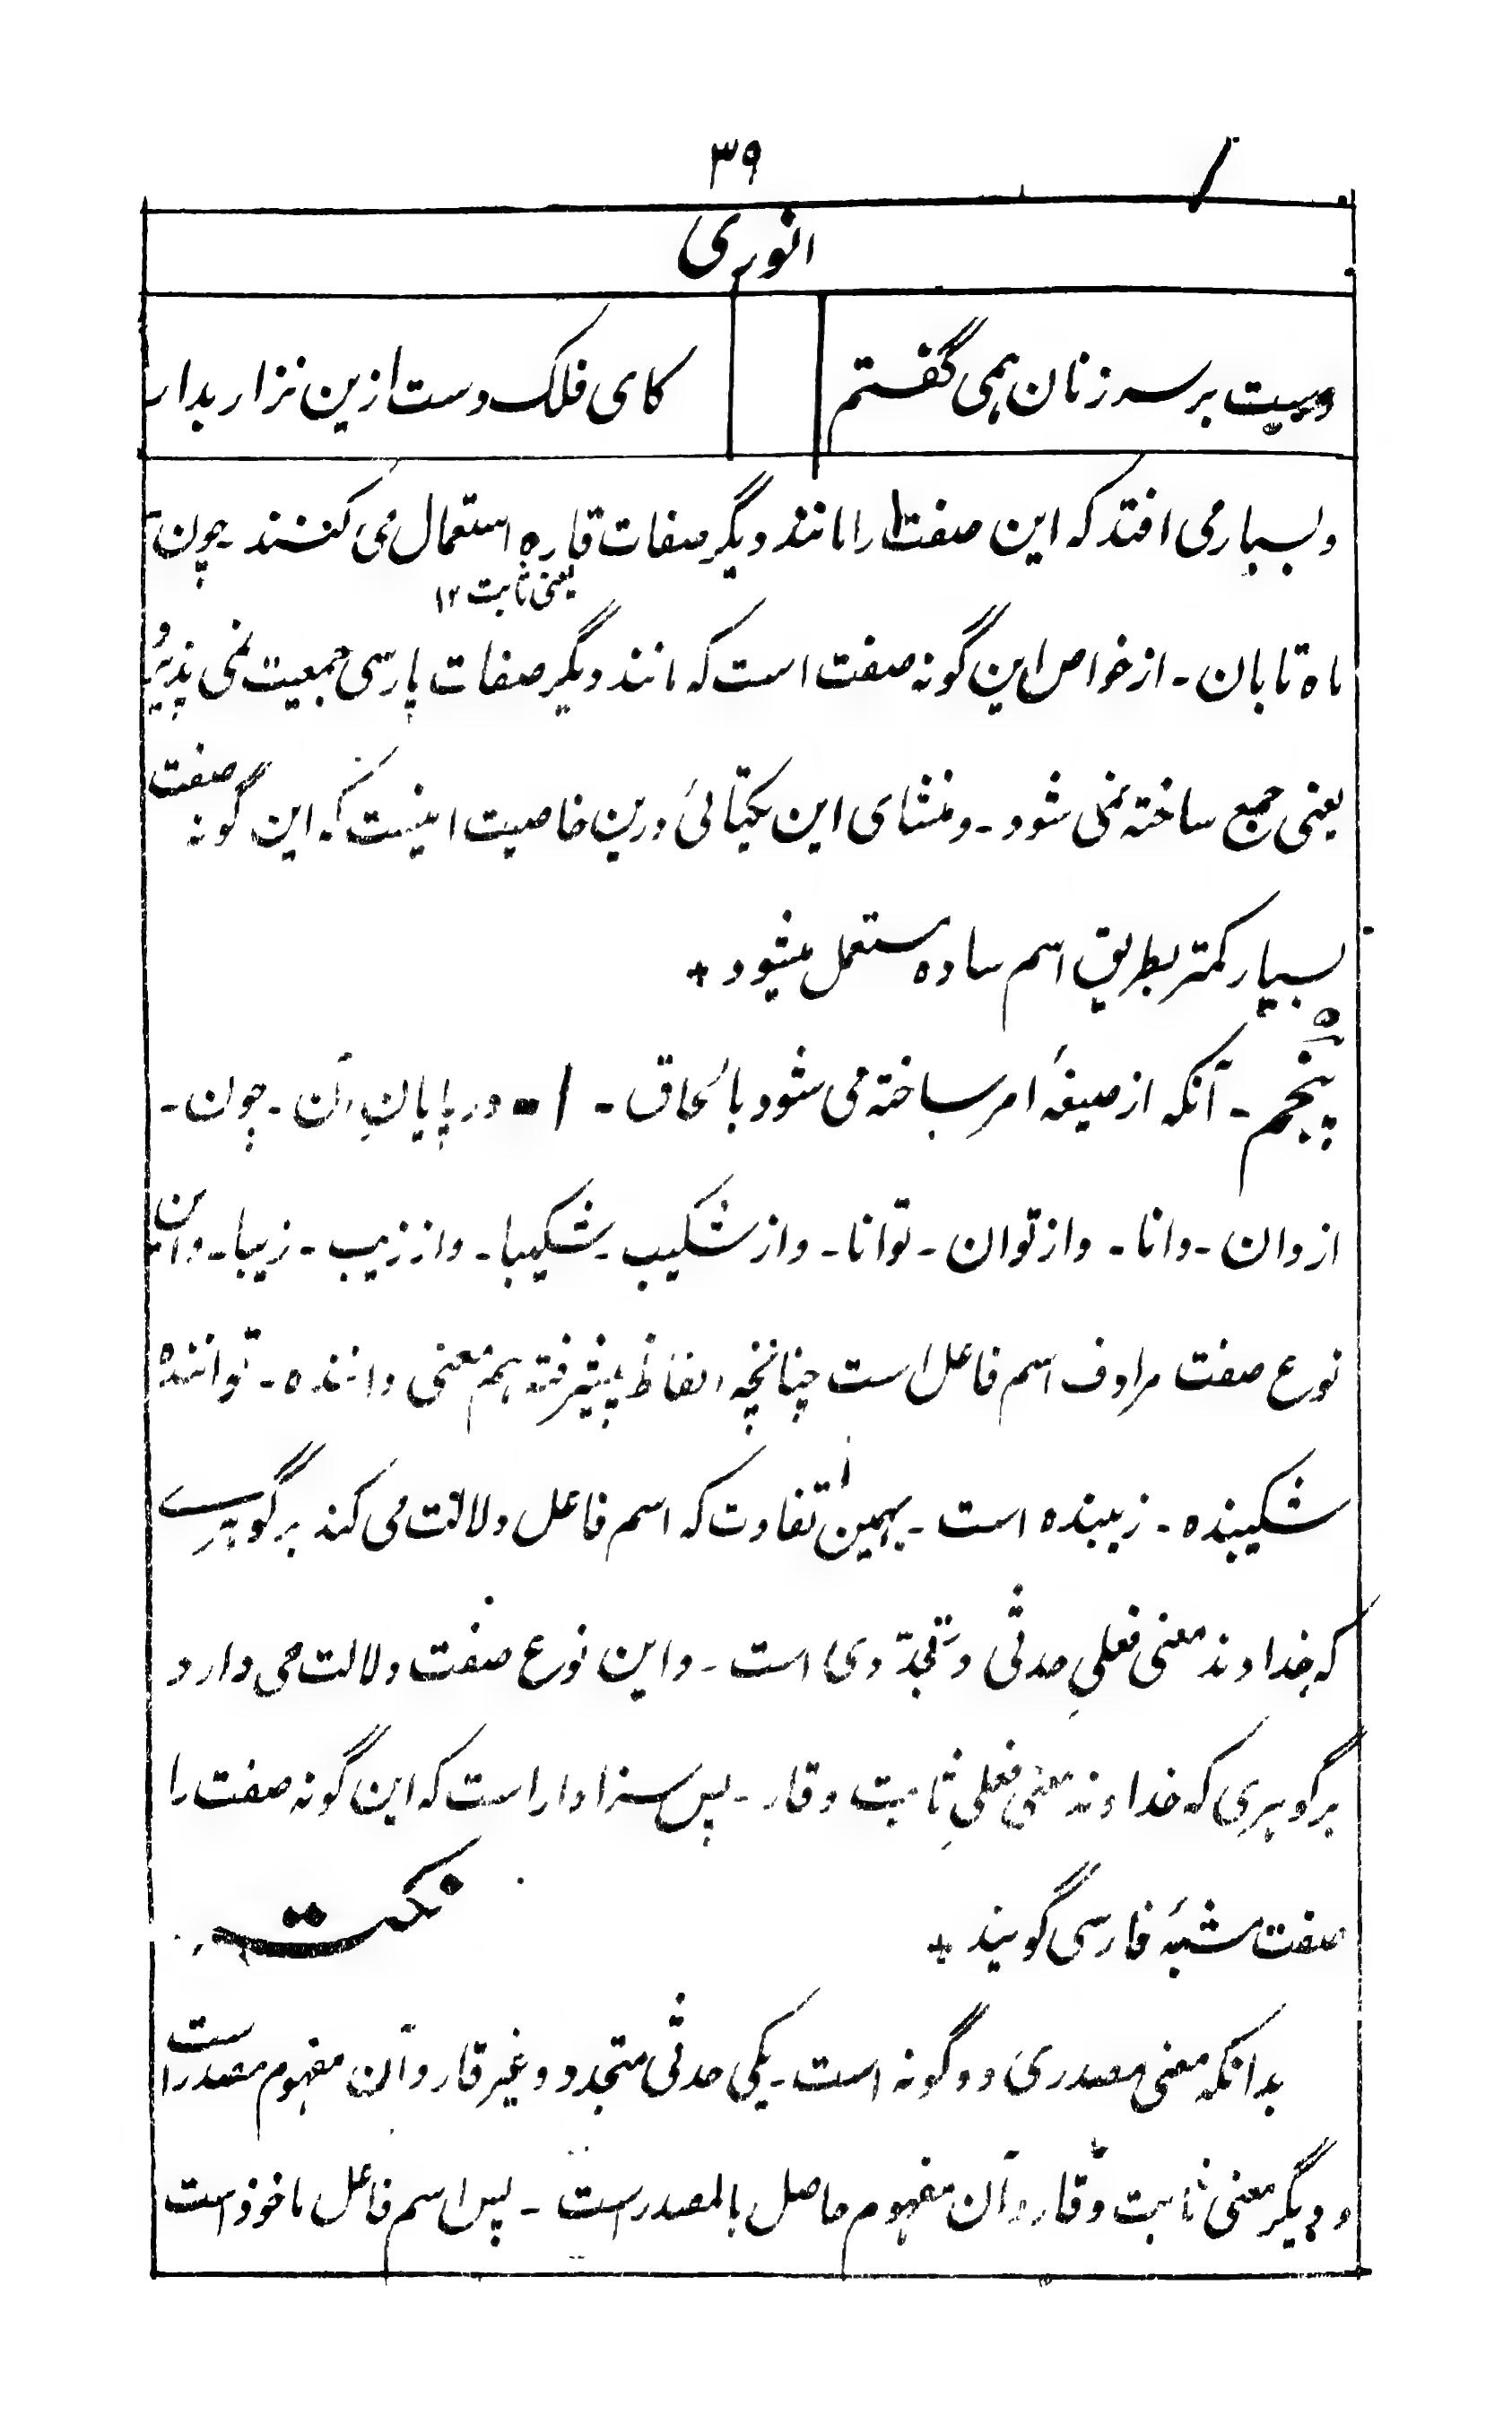 ۳۹
انوری
دست بر سر زنان همی گفتم
کای فلک دست ازین نزار بدار
و بسیار می افتد که این صفت را مانند دیگر صفات قاره استعمال می کنند چون
یعنی ثابت ۱۲
ماه تابان - از خواص این گونه صفت است که مانند دیگر صفات پارسی جمعیت نمی پذیرد
یعنی جمع ساخته نمی شود - و منشای این یکتائی درین خاصیت اینست که این گونه صفت
بسیار کمتر بطریق اسم ساده مستعمل میشود +
پنجم - آنکه از صیغۀ امر ساخته می شود بالحاق - ا - در پایانِ آن - چون -
از دان - دانا - و از توان - توانا - و از شکیب - شکیبا - و از زیب - زیبا - و این
نوع صفت مرادف اسم فاعل است چنانچه الفاظ پیشرفته هم معنی داننده - تواننده
شکیبنده - زیبنده است - بهمین تفاوت که اسم فاعل دلالت می کند بر گوهرے
که خداوند معنی فعلیِ حدثی و تجدّدی است - و این نوع صفت دلالت می دارد
بر گوهری که خداوند معنی فعلیِ ثابت و قار - پس سزاوار است که این گونه صفت را
صفت مشبۀ فارسی گویند +
نکت
بدانکه معنی مصدری دوگونه است - یکی حدثی متجدد و غیر قار و آن مفهوم مصدر است
و دیگر معنی ثابت و قار و آن مفهوم حاصل بالمصدر است - پس اسم فاعل ماخوذ است